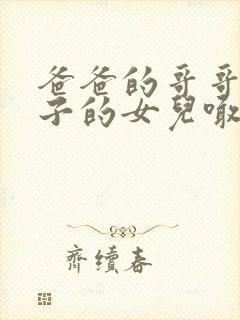 爸爸的哥哥
子的女兒噉
齊續春